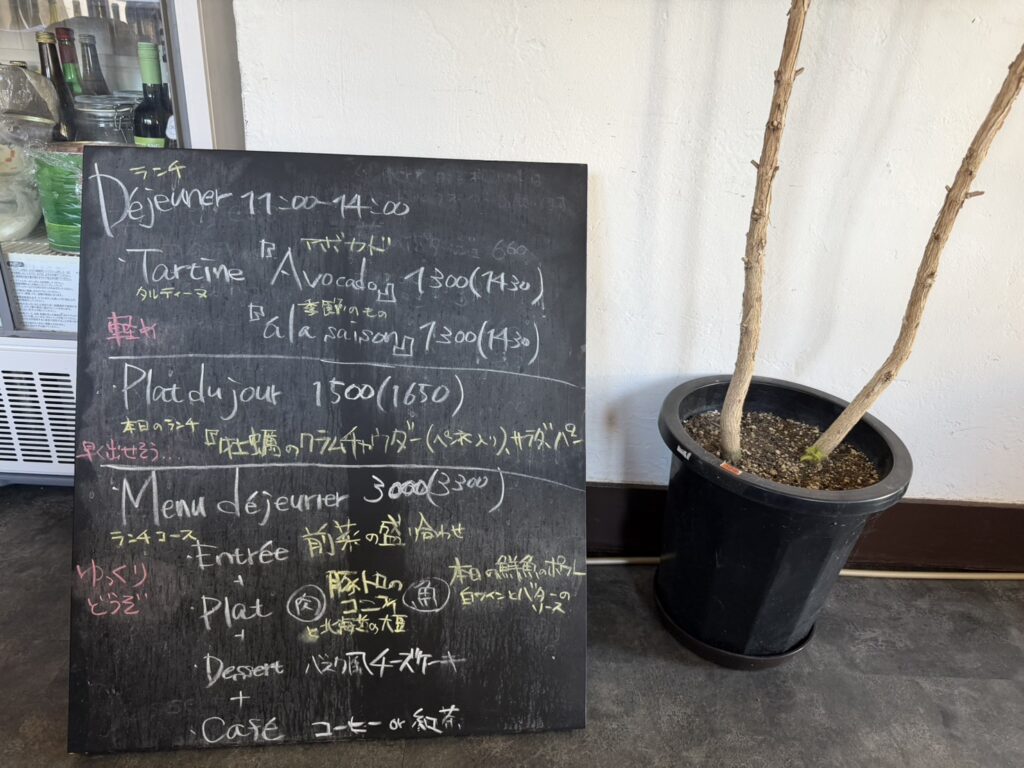 ランチ
Déjeuner 11:00~14:00
・Tartine 『Avocado』 1300(1430)
アボカド
タルティーヌ
季節のもの
『à la saison』 1300(1430)
軽め
・Plat du jour 1500(1650)
本日のランチ 『牡蠣のクラムチャウダー(ペネ入り)、サラダ、パン
早く出せそう...
・Menu déjeuner 3000(3300)
ランチコース
・Entrée 前菜の盛り合わせ
+
ゆっくり
どうぞ
・Plat 肉 豚トロの
コンフィ
と北海道の大豆
魚 本日の鮮魚のポワレ
白ワインとバターの
ソース
+
・Dessert バスク風チーズケーキ
+
・Café コーヒー or 紅茶